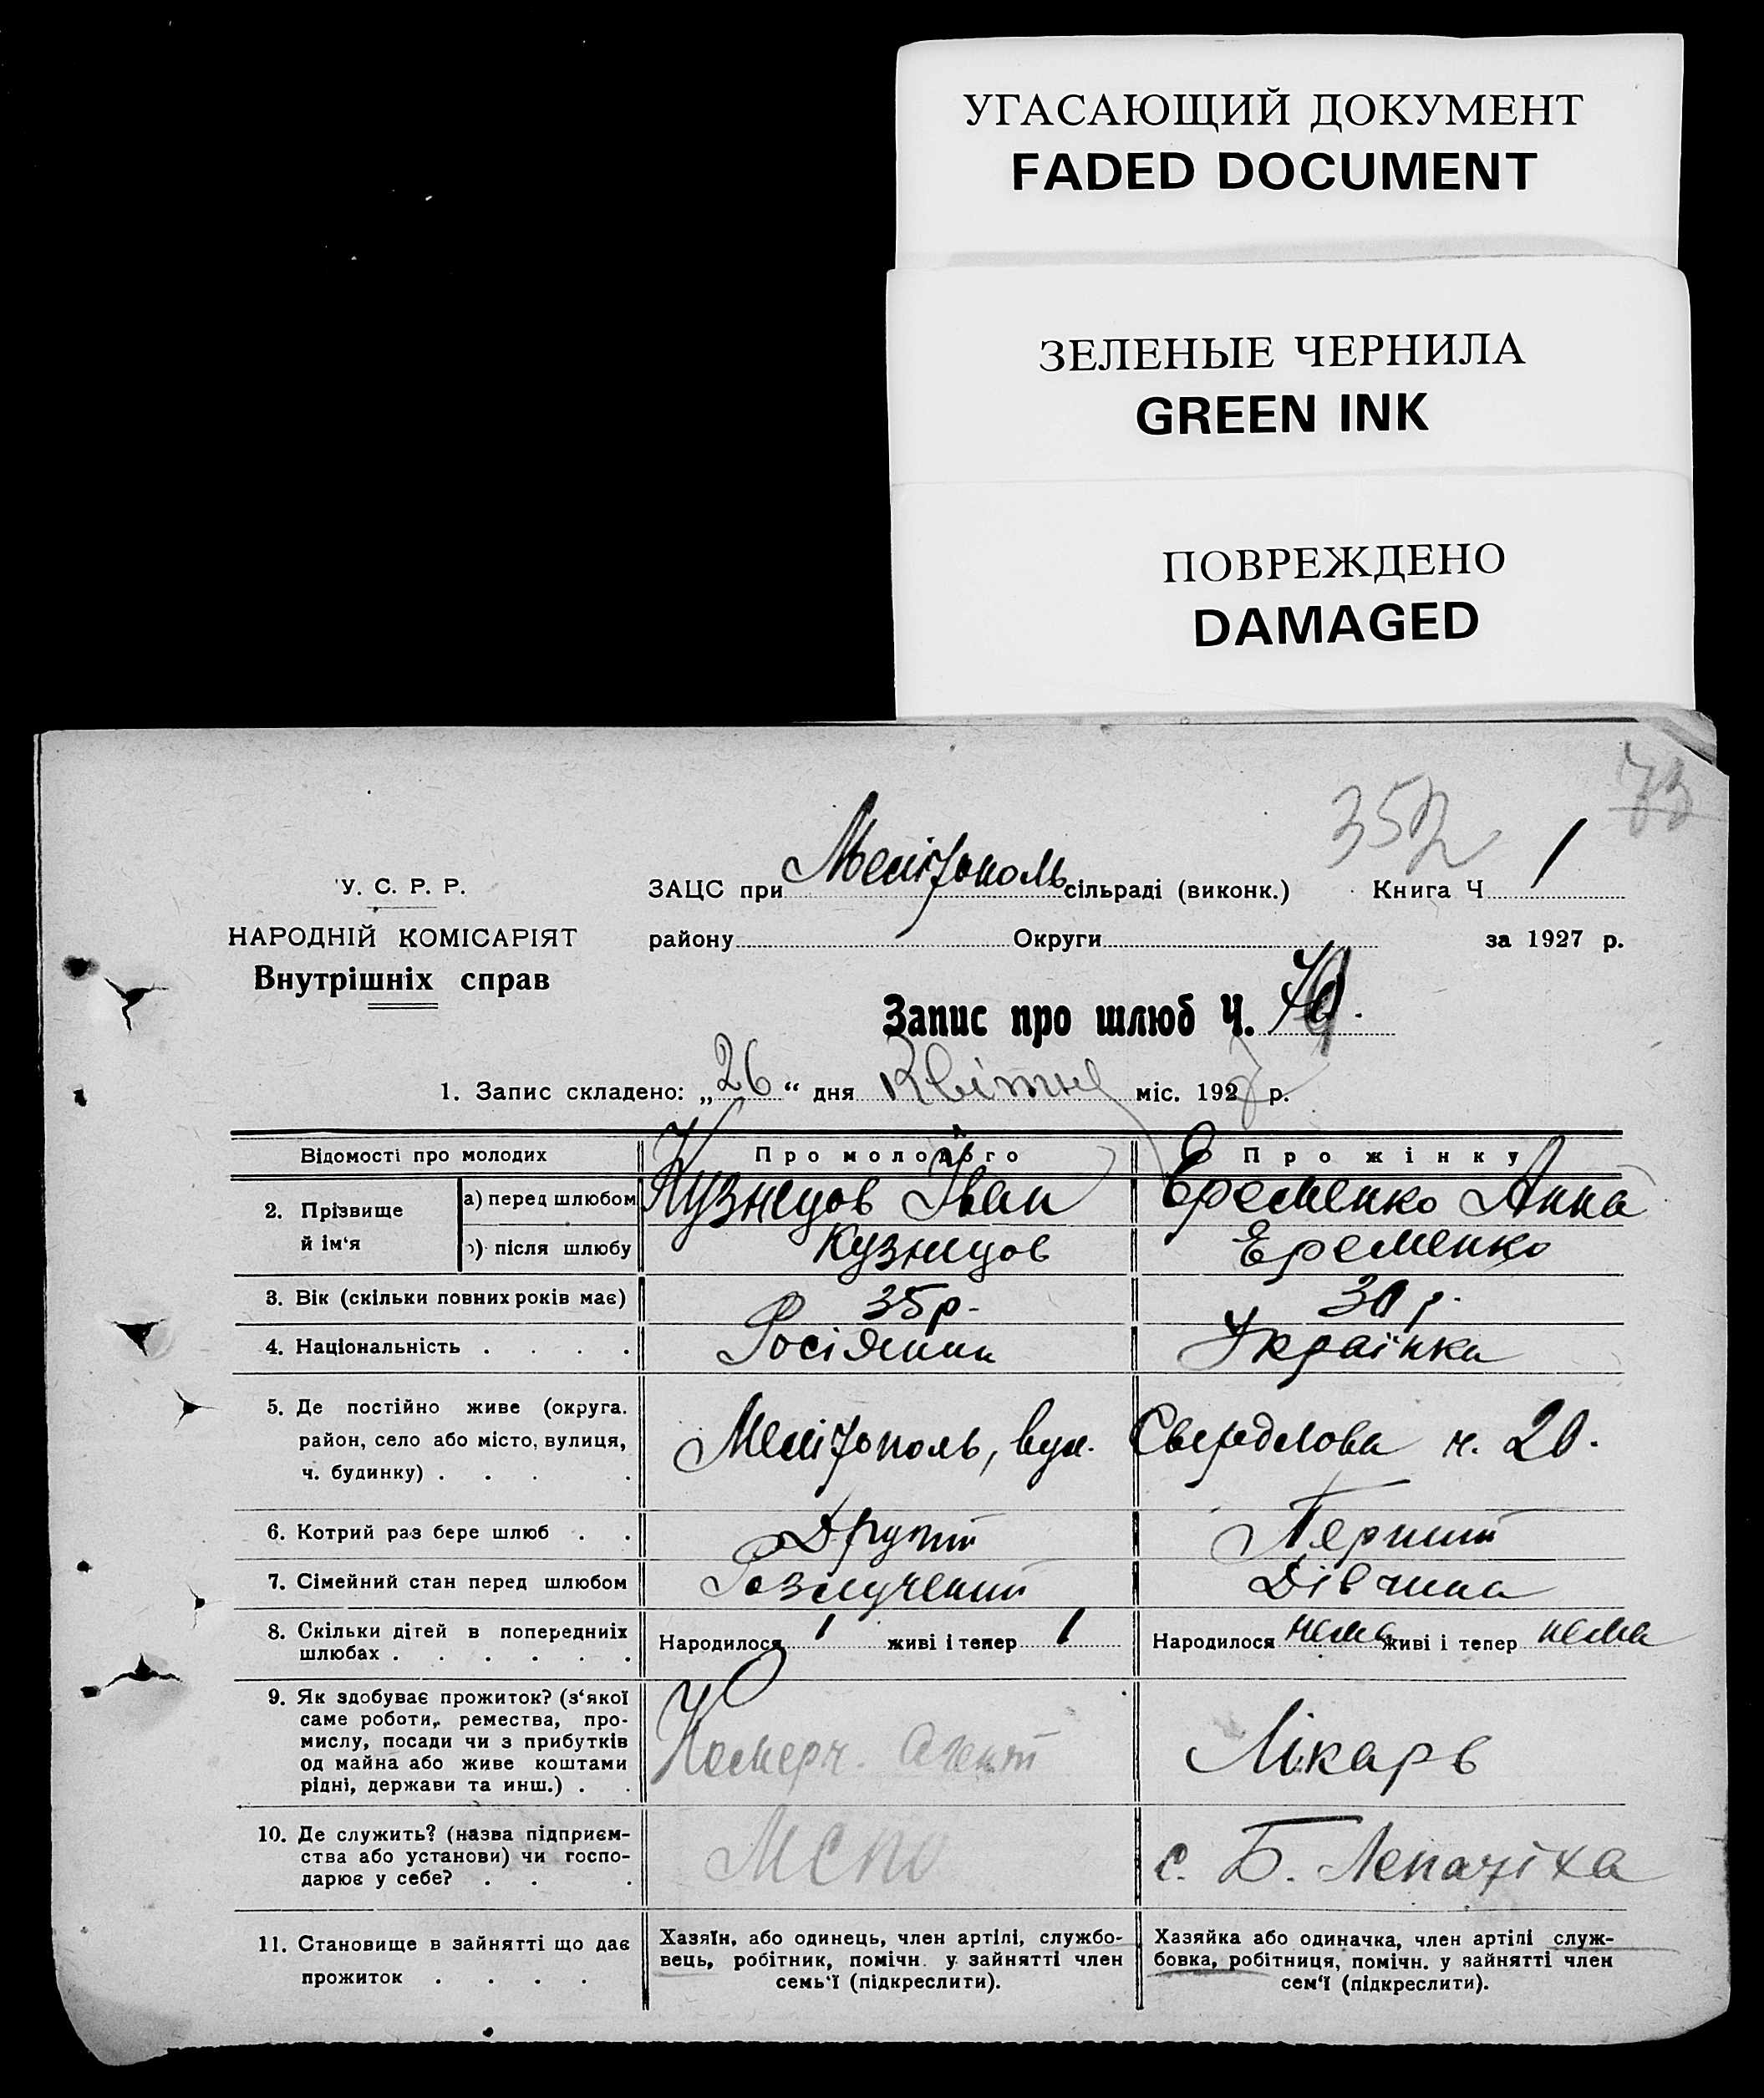 УГАСАЮЩИЙ ДОКУМЕНТ
FADED DOCUMENT
ЗЕЛЕНЫЕ ЧЕРНИЛА
GREEN INK
ПОВРЕЖДЕНО
DAMAGED
352 73
У. С. Р. Р.
НАРОДНІЙ КОМІСАРІЯТ
Внутрішніх справ
ЗАЦС при Мелітополь сільраді (виконк.) Книга Ч 1
району Округи за 1927 р.
Запис про шлюб Ч.
1. Запис складено: „26“ дня Квітня міс. 1927 р.
Відомості про молодих Про молодого Про жінку
2. Прізвище й ім‘я а) перед шлюбом Кузнецов Іван Еременко Анна
б) після шлюбу Кузнецов Еременко
3. Вік (скільки повних років має) 35 р. 30 р.
4. Національність . . . . Росіянин Українка
5. Де постійно живе (округа.
район, село або місто, вулиця, Мелітополь, вул. Свердлова ч. 20.
ч. будинку) . . . .
6. Котрий раз бере шлюб . . Другий Перший
7. Сімейний стан перед шлюбом Розлучений Дівчина
8. Скільки дітей в попередниіх Народилося 1 живі і тепер 1 Народилося нема живі і тепер нема
шлюбах . . . . . .
9. Як здобуває прожиток? (з‘якої
саме роботи, ремества, про-
мислу, посади чи з прибутків Комерч. Агент Лікарь
од майна або живе коштами
рідні, держави та инш.) . .
10. Де служить? (назва підприєм-
ства або установи) чи госпо- МСПО с. Б. Лепатіха
дарює у себе? . . .
11. Становище в зайнятті що дає
прожиток . . . .
Хазяїн, або одинець, член артілі, службо-
вець, робітник, помічн. у зайнятті член
семь‘ї (підкреслити).
Хазяйка або одиначка, член артілі служ-
бовка, робітниця, помічн. у зайнятті член
сем‘ї (підкреслити).